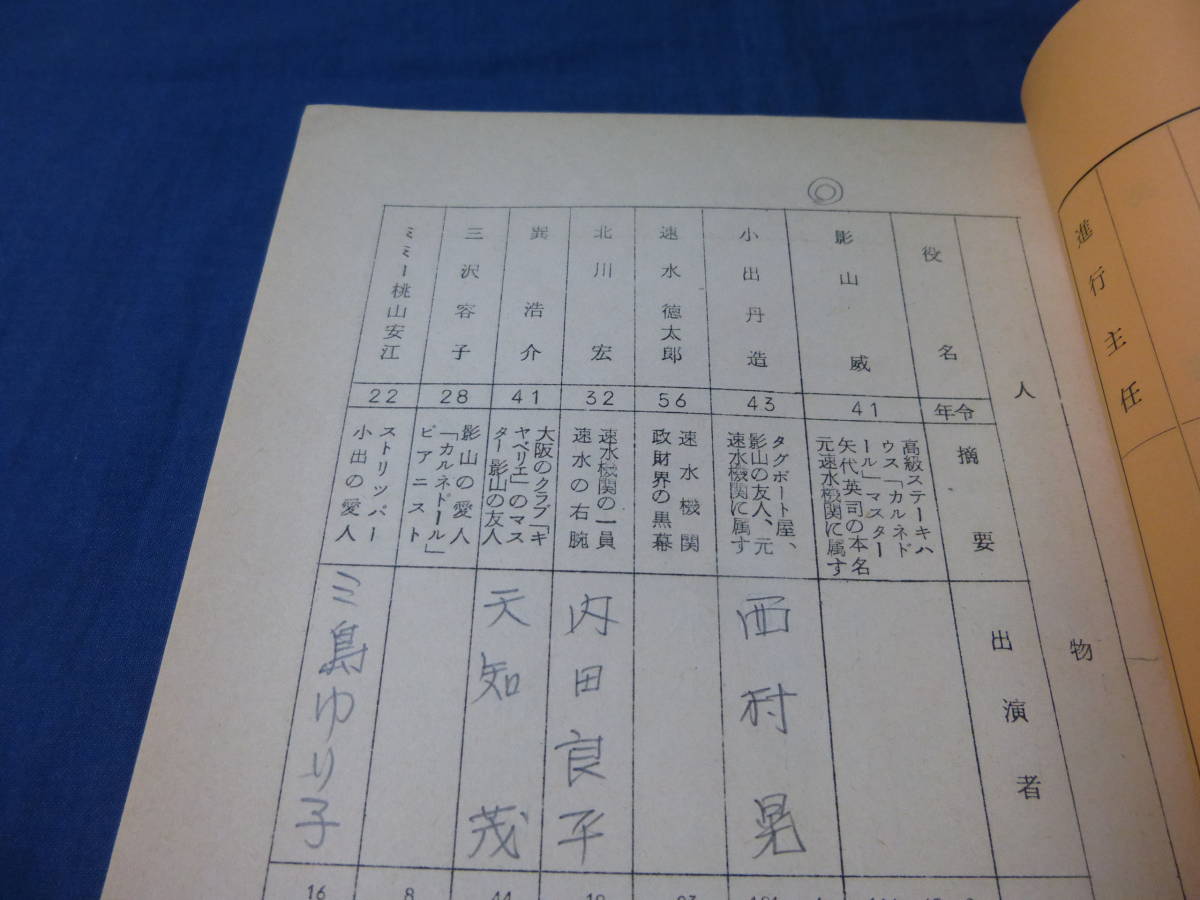 進行主任
人物
役名
年令
摘要
出演者
影山威
41
高級ステーキハ
ウス「カルネド
ール」マスター
矢代英司の本名
元速水機関に属す
小出丹造
43
タグボート屋、
影山の友人、元
速水機関に属す
西村晃
速水徳太郎
56
速水機関
政財界の黒幕
北川宏
32
速水機関の一員
速水の右腕
内田良平
巽浩介
41
大阪のクラブ「キ
ヤベリエ」のマス
ター影山の友人
天知茂
三沢容子
28
影山の愛人
「カルネドール」
ピアニスト
ミミー桃山安江
22
ストリツパー
小出の愛人
三島ゆり子
16
8
44